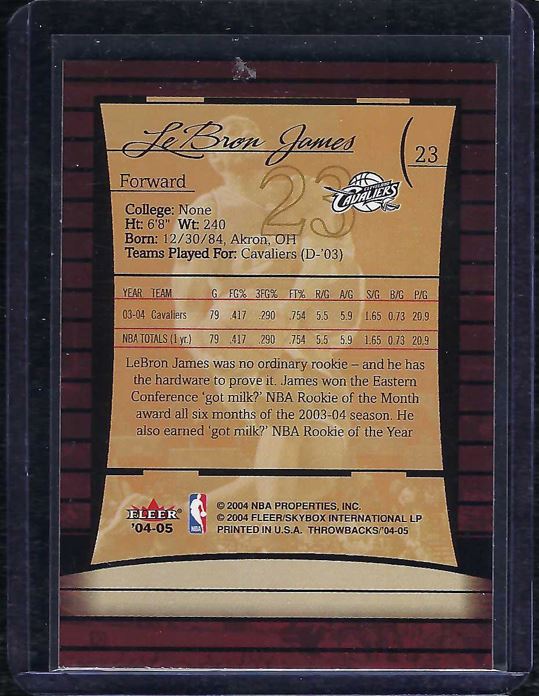 LeBron James
23
Forward
23
CLEVELAND
CAVALIERS
College: None
Ht: 6'8" Wt: 240
Born: 12/30/84, Akron, OH
Teams Played For: Cavaliers (D-'03)
YEAR TEAM G FG% 3FG% FT% R/G A/G S/G B/G P/G
03-04 Cavaliers 79 .417 .290 .754 5.5 5.9 1.65 0.73 20.9
NBA TOTALS (1 yr.) 79 .417 .290 .754 5.5 5.9 1.65 0.73 20.9
LeBron James was no ordinary rookie – and he has
the hardware to prove it. James won the Eastern
Conference 'got milk?' NBA Rookie of the Month
award all six months of the 2003-04 season. He
also earned 'got milk?' NBA Rookie of the Year
FLEER®
'04-05
NBA
© 2004 NBA PROPERTIES, INC.
© 2004 FLEER/SKYBOX INTERNATIONAL LP
PRINTED IN U.S.A. THROWBACKS/'04-05